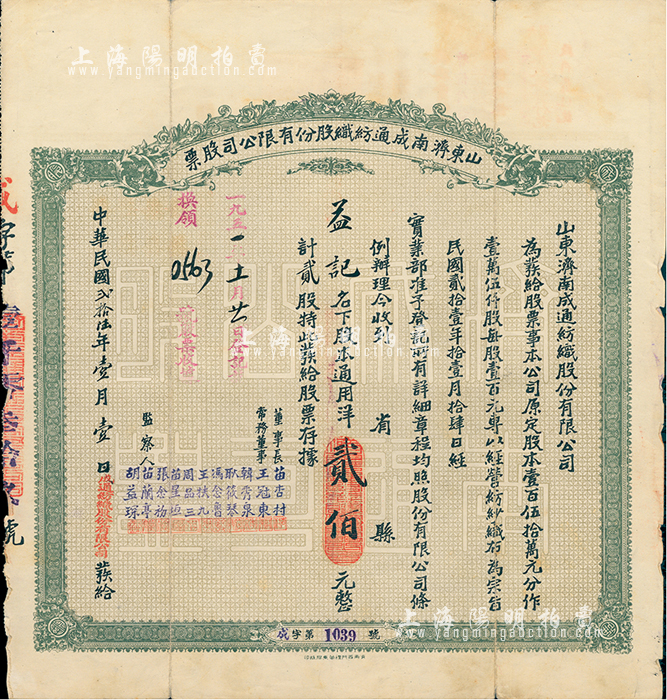 上海陽明拍賣
www.yangmingauction.com
山東濟南成通紡織股份有限公司股票
山東濟南成通紡織股份有限公司
為發給股票事本公司原定股本壹百伍拾萬元分作
壹萬伍仟股每股壹百元專以經營紡紗織布為宗旨
民國貳拾壹年拾壹月拾肆日經
實業部准予登記所有詳細章程均照股份有限公司條
例辦理今收到 省 縣
益記名下股本通用洋貳佰元整
計貳股特此發給股票存據
董事長 苗杏村
常務董事 王冠東
韓秀泉
耿筱琴
馮念魯
王扶九
周品三
苗星垣
監察人 張念劬
苗蘭亭
胡益琛
一九五一 月 日
換領
0563
號股票
中華民國貳拾伍年壹月壹日 發給
成通紡織股份有限公司
成字第1039號
上海陽明拍賣
www.yangmingauction.com
上海陽明拍賣
www.yangmingauction.com